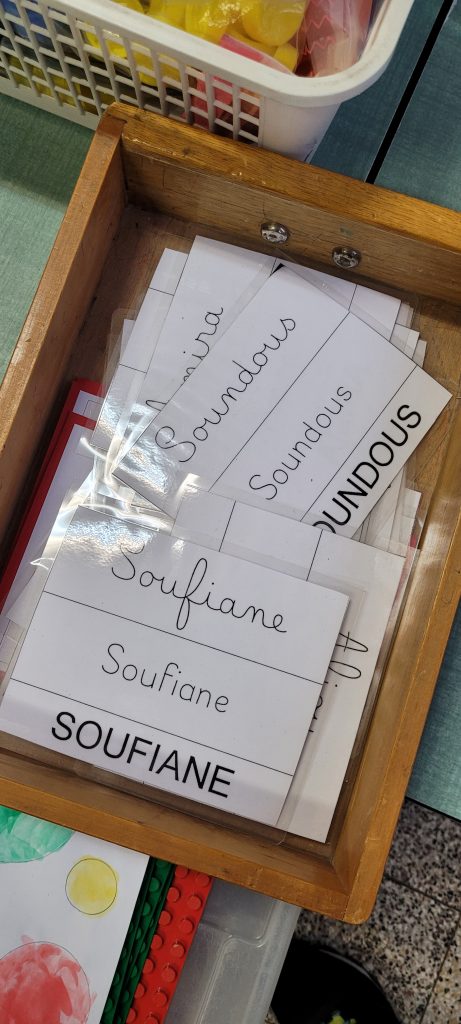 Soundous
Soundous
OUNDOUS
Soufiane
Soufiane
SOUFIANE